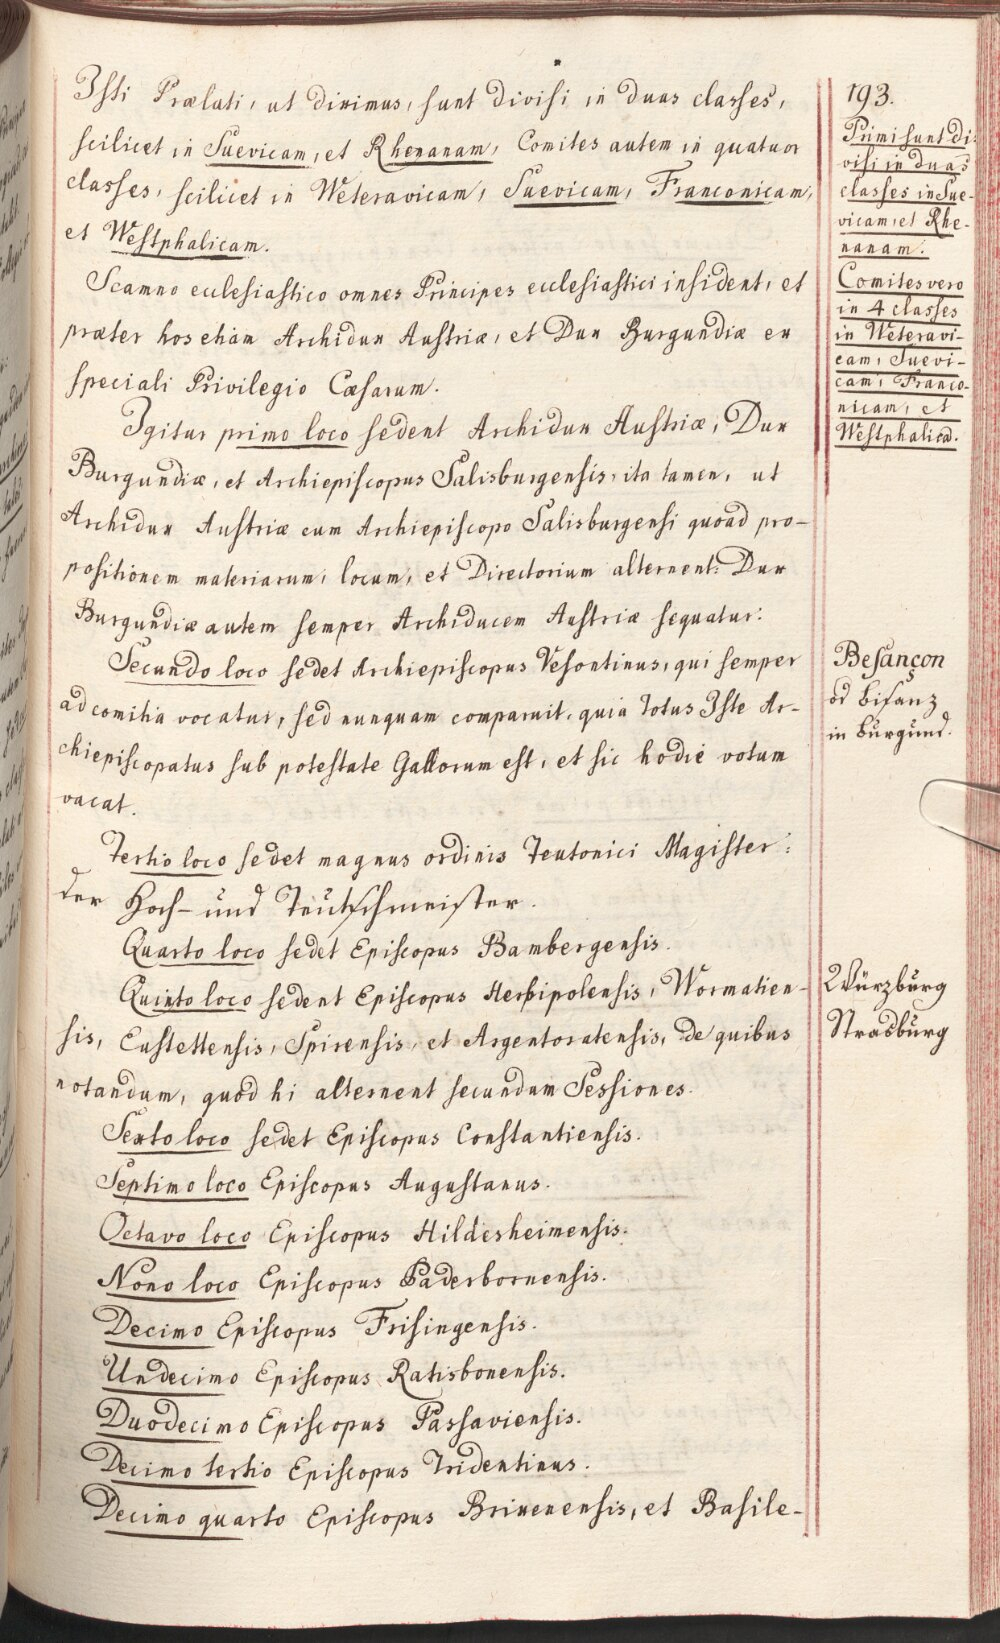 Isti Prælati, ut diximus, sunt divisi in duas classes,
scilicet in Suevicam, et Rhenanam, Comites autem in quatuor
classes, scilicet in Weteravicam, Suevicam, Franconicam,
et Westphalicam.
Scamno ecclesiastico omnes Principes ecclesiastici insident, et
præter hos etiam Archidux Austriæ, et Dux Burgundiæ ex
speciali Privilegio Cæsarum.
Igitur primo loco sedent Archidux Austriæ, Dux
Burgundiæ, et Archiepiscopus Salisburgensis, ita tamen, ut
Archidux Austriæ cum Archiepiscopo Salisburgensi quoad pro-
positionem materiarum, locum, et Directorium alternent: Dux
Burgundiæ autem semper Archiducem Austriæ sequatur.
Secundo loco sedet Archiepiscopus Vesontinus, qui semper
ad comitia vocatur, sed nunquam comparuit, quia totus Iste Ar-
chiepiscopatus sub potestate Gallorum est, et sic hodie votum
vacat.
Tertio loco sedet magnus ordinis Teutonici Magister:
der Hoch- und Teütschmeister.
Quarto loco sedet Episcopus Bambergensis.
Quinto loco sedent Episcopus Herbipolensis, Wormatien-
sis, Eustettensis, Spirensis, et Argentoratensis, de quibus
notandum, quod hi alternent secundum Sessiones.
Sexto loco sedet Episcopus Constantiensis.
Septimo loco Episcopus Augustanus.
Octavo loco Episcopus Hildesheimensis.
Nono loco Episcopus Paderbornensis.
Decimo Episcopus Frisingensis.
Undecimo Episcopus Ratisbonensis.
Duodecimo Episcopus Passaviensis.
Decimo tertio Episcopus Tridentinus.
Decimo quarto Episcopus Brixenensis, et Basile-
193.
Primi sunt di-
visi in duas
classes in Sue-
vicam, et Rhe-
nanam.
Comites vero
in 4 classes
in Weteravi-
cam, Suevi-
cam, Franco-
nicam, et
Westphalica.
Besançon
od Bisanz
in Burgund.
Würzburg
Strasburg